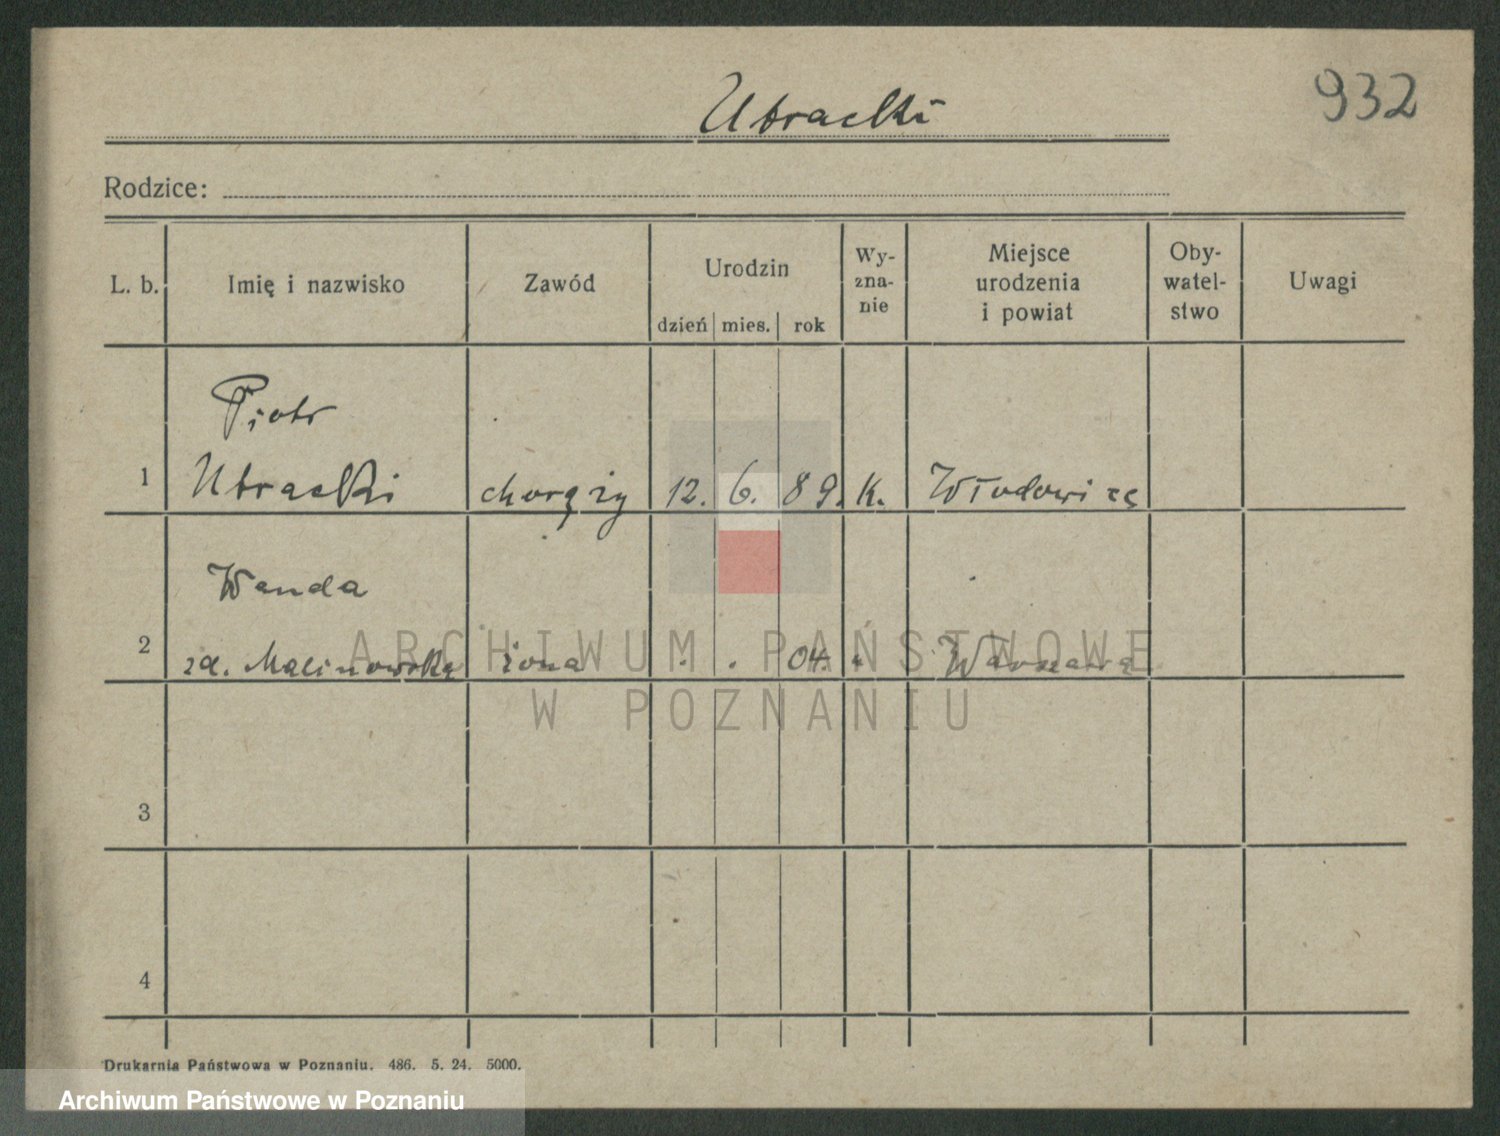 932
Utracki
Rodzice:
L. b.
Imię i nazwisko
Zawód
Urodzin
dzień mies. rok
Wy-
zna-
nie
Miejsce
urodzenia
i powiat
Oby-
watel-
stwo
Uwagi
Piotr
1 Utracki chorąży 12. 6. 89. K.
Wanda
2 zd. Malinowska żona . . 04. " Warszawa
ARCHIWUM PAŃSTWOWE
W POZNANIU
3
4
Drukarnia Państwowa w Poznaniu. 486. 5. 24. 5000.
Archiwum Państwowe w Poznaniu